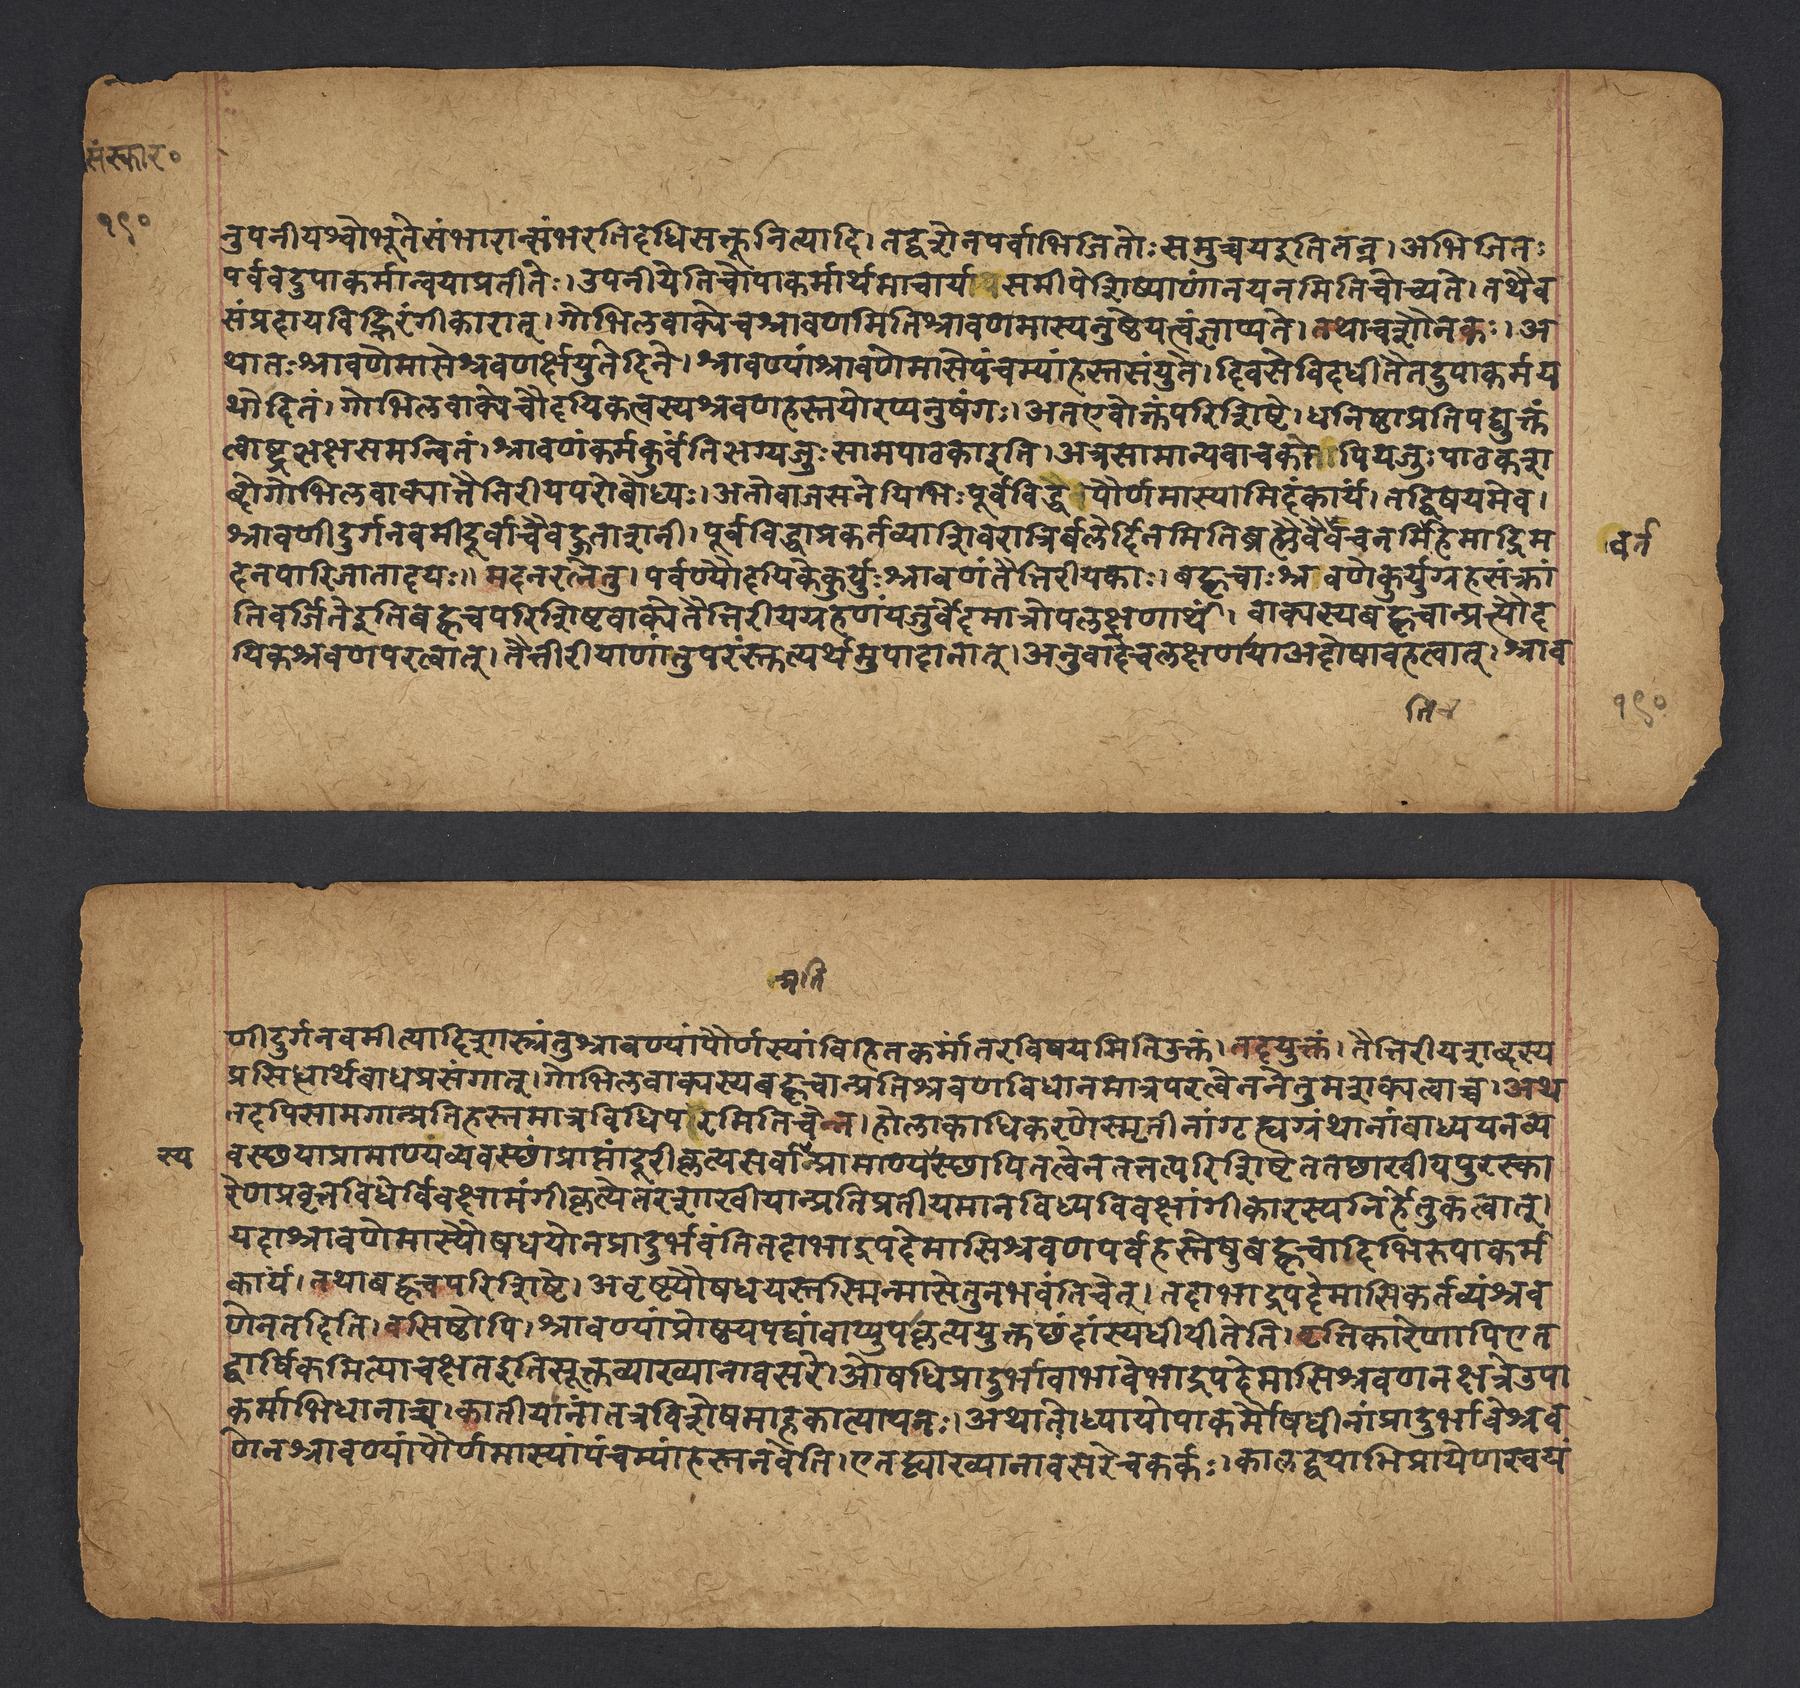 संस्कार०
१९०
नुपनीयश्वोभूतेसंभारान्संभरतिदधिसक्तूनित्यादि। तद्वशेनपर्वाभिजितोःसमुच्चयइतितन्न।अभिजितः
पर्ववदुपाकर्मान्वयाप्रतीतेः।उपनीयेतिचोपाकर्मार्थमाचार्यायसमीपेशिष्याणांनयनमितिचोच्यते।तथैव
संप्रदायविद्भिरंगीकारात्।गोभिलवाक्येचश्रावणमितिश्रावणमास्यनुष्ठेयत्वंज्ञाप्यते।तथाचशौनकः।अ
थातःश्रावणेमासेश्रवणर्क्षयुतेदिने।श्रावण्यांश्रावणेमासेपंचम्यांहस्तसंयुते।दिवसेविदधीतैतदुपाकर्मय
थोदितं।गोभिलवाक्येचौदयिकत्वस्यश्रवणहस्तयोरप्यनुषंगः।अतएवोक्तंपरिशिष्टे।धनिष्ठाप्रतिपद्युक्तं
त्वाष्ट्रऋक्षसमन्वितं।श्रावणंकर्मकुर्वंतिऋग्यजुःसामपाठकाइति।अत्रसामान्यवाचकमपियजुःपाठकश
ब्दोगोभिलवाक्यात्तैत्तिरीयपरोबोध्यः।अतोवाजसनेयिभिःपूर्वविद्धपौर्णमास्यामिदंकार्यं।तद्विषयमेव।
श्रावणीदुर्गनवमीदूर्वाचैवहुताशनी।पूर्वविद्धाप्रकर्तव्याशिवरात्रिर्बलेर्दिनमितिब्रह्मवैवर्तवचनमितिहेमाद्रिम
वर्त
दनपारिजातादयः॥मदनरत्नेतु।पर्वण्यौदयिकेकुर्युःश्रावणंतैत्तिरीयकाः।बह्वृचाःश्रवणेकुर्युग्रहसंक्रां
तिवर्जितेइतिबह्वृचपरिशिष्टवाक्येतैत्तिरीयग्रहणंयजुर्वेदमात्रोपलक्षणार्थं।वाक्यस्यबह्वृचान्प्रत्यौद
यिकश्रवणपरत्वात्।तैत्तीरीयाणांतुपरंस्तुत्यर्थमुपादानात्।अनुवादेचलक्षणयाअदोषावहत्वात्।श्राव
ति
१९०
ति
णीदुर्गनवमीत्यादिशास्त्रंतुश्रावण्यांपौर्णस्यांविहितकर्मांतरविषयमितिउक्तं।तदयुक्तं।तैत्तिरीयशब्दस्य
प्रसिद्धार्थबाधप्रसंगात्।गोभिलवाक्यस्यबह्वृचान्प्रतिश्रवणविधानमात्रपरत्वेननेतुमशक्यत्वाच्च।अथ
तदपिसामगान्प्रतिहस्तमात्रविधिपरमितिचेन्न।होलाकाधिकरणेस्मृतीनांगृह्यग्रंथानांवाध्ययनव्य
स्य
वस्छयाप्रामाण्यंव्यवस्छांप्राप्तांदूरीकृत्यसर्वान्प्रामाण्यस्छापितत्वेनतत्तत्परिशिष्टेततछाखीयपुरस्का
रेणप्रवृत्तविधेर्विवक्षामंगीकृत्येतरशाखीयान्प्रतिप्रतीयमानविध्यविवक्षांगीकारस्यनिर्हेतुकत्वात्।
यदाश्रावणेमास्यौषधयोनप्रादुर्भवंतितदाभाद्रपदेमासिश्रवणपर्वहस्तेषुबह्वृचादिभिरुपाकर्म
कार्यं।तथाबह्वृचपरिशिष्टे।अवृष्ट्यौषधयस्तस्मिन्मासेतुनभवंतिचेत्।तदाभाद्रपदेमासिकर्तव्यंश्रव
णेनतदिति।वसिष्ठोपि।श्रावण्यांप्रौष्ठयपद्यांवाप्युपाकृत्ययुक्तछंदांस्यधीयीतेति।वृत्तिकारेणापिएत
द्वार्षिकमित्याचक्षतइतिसूक्तव्याख्यानावसरे।ओषधिप्रादुर्भावाभावेभाद्रपदेमासिश्रवणनक्षत्रेउपा
कर्माभिधानाच्च।कातीयानांतत्रविशेषमाहकात्यायनः।अथातोध्यायोपाकर्मौषधीनांप्रादुर्भावेश्रव
णेनश्रावण्यांपौर्णमास्यांपंचम्यांहस्तेनवेति।एतद्व्याख्यानावसरेचकर्कः।कालद्वयाभिप्रायेणस्वयं